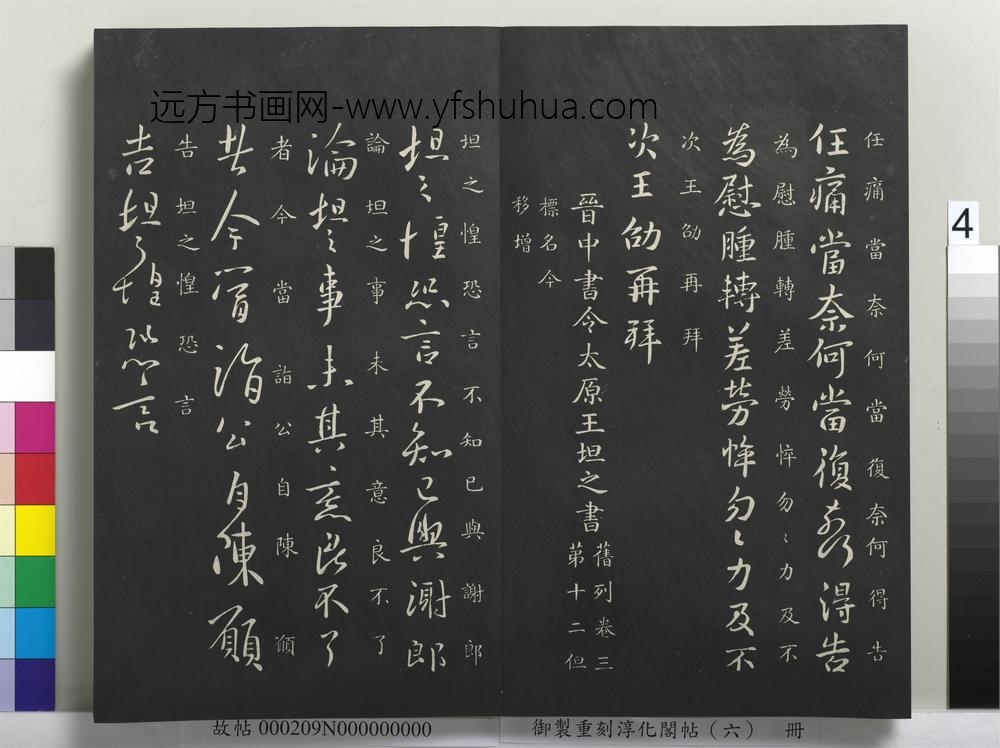 远方书画网-www.yfshuhua.com
任痛當奈何當復奈何得告
任痛當奈何當復奈何得告
為慰腫轉差勞悴勿〻力及不
為慰腫轉差勞悴勿〻力及不
次王劭再拜
次王劭再拜
晉中書令太原王坦之書
舊列卷三
第十二但
標名今
移增
坦之惶恐言不知已與謝郎
坦之惶恐言不知已與謝郎
論坦之事未其意良不了
論坦之事未其意良不了
者今當詣公自陳願
者今當詣公自陳願
告坦之惶恐言
告坦之惶恐言
4
故帖 000209N000000000
御製重刻淳化閣帖（六） 冊